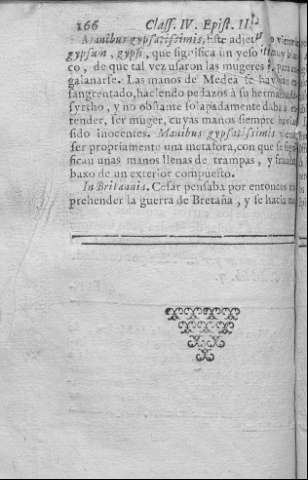 166 Class. IV. Epist. II.
Manibus gypsatissimis, Este adjet
gypsum, gypsi, que significa un yeso
co, de que tal vez usaron las mugeres para
galanarse. Las manos de Medea se
sangrentado, haciendo pedazos à su hermano
syrtho, y no obstante solapadamente daba à
tender, ser muger, cuyas manos siempre
sido inocentes. Manibus gypsatissimis
ser propriamente una metafora, con que se
fican unas manos llenas de trampas, y
baxo de un exterior compuesto.
In Britannia. Cesar pensaba por entonces
prehender la guerra de Bretaña, y se hacia